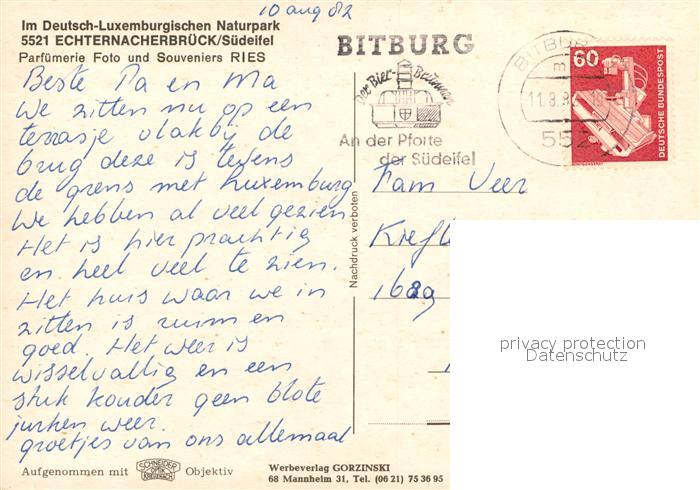 10 aug 82
Im Deutsch-Luxemburgischen Naturpark
5521 ECHTERNACHERBRÜCK/Südeifel
Parfümerie Foto und Souveniers RIES
Beste Pa en Ma
We zitten nu op een
terrasje vlakbij de
brug deze is tevens
de grens met Luxemburg
We hebben al veel gezien
Het is hier prachtig
en heel veel te zien.
Het huis waar we in
zitten is ruim en
goed. Het weer is
wisselvallig en een
stuk kouder geen blote
jurken weer.
groetjes van ons allemaal
Aufgenommen mit SCHNEIDER OPTIK KREUZNACH Objektiv
BITBURG
Der Bier-Brunnen
An der Pforte
der Südeifel
BITBURG
11.8.82
552
60
DEUTSCHE BUNDESPOST
Fam Veer
Kiefl
1689
Nachdruck verboten
privacy protection
Datenschutz
Werbeverlag GORZINSKI
68 Mannheim 31, Tel. (06 21) 75 36 95